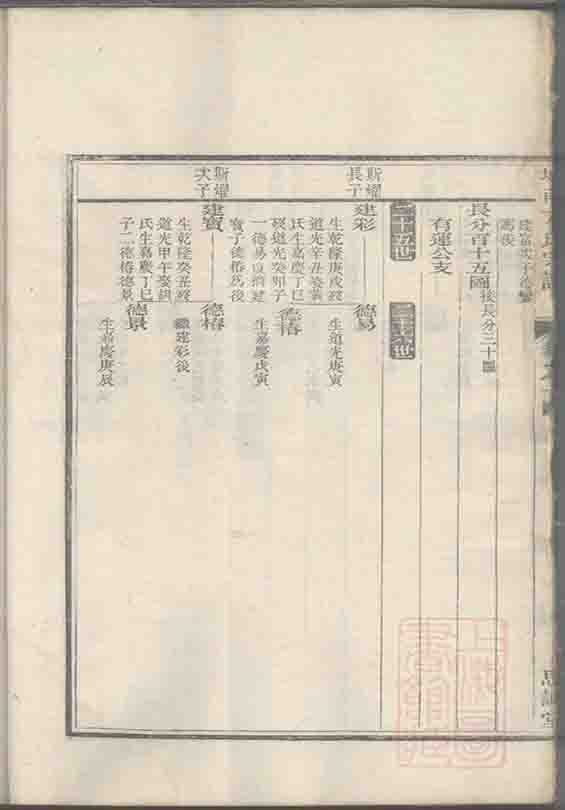 長分百十五圖 後長分三十圖
有運公支
二十五世
二十六世
斯耀
長子
建彩
生乾隆庚戌歿
道光辛丑娶黃
氏生嘉慶丁巳
歿道光癸卯子
一德易
寶子德椿爲後
德易
生道光庚寅
德椿
生嘉慶戊寅
斯耀
次子
建寶
生乾隆癸丑歿
道光甲午娶
氏生嘉慶丁巳
子二德椿德景
德椿
繼建彩後
德景
生嘉慶庚辰